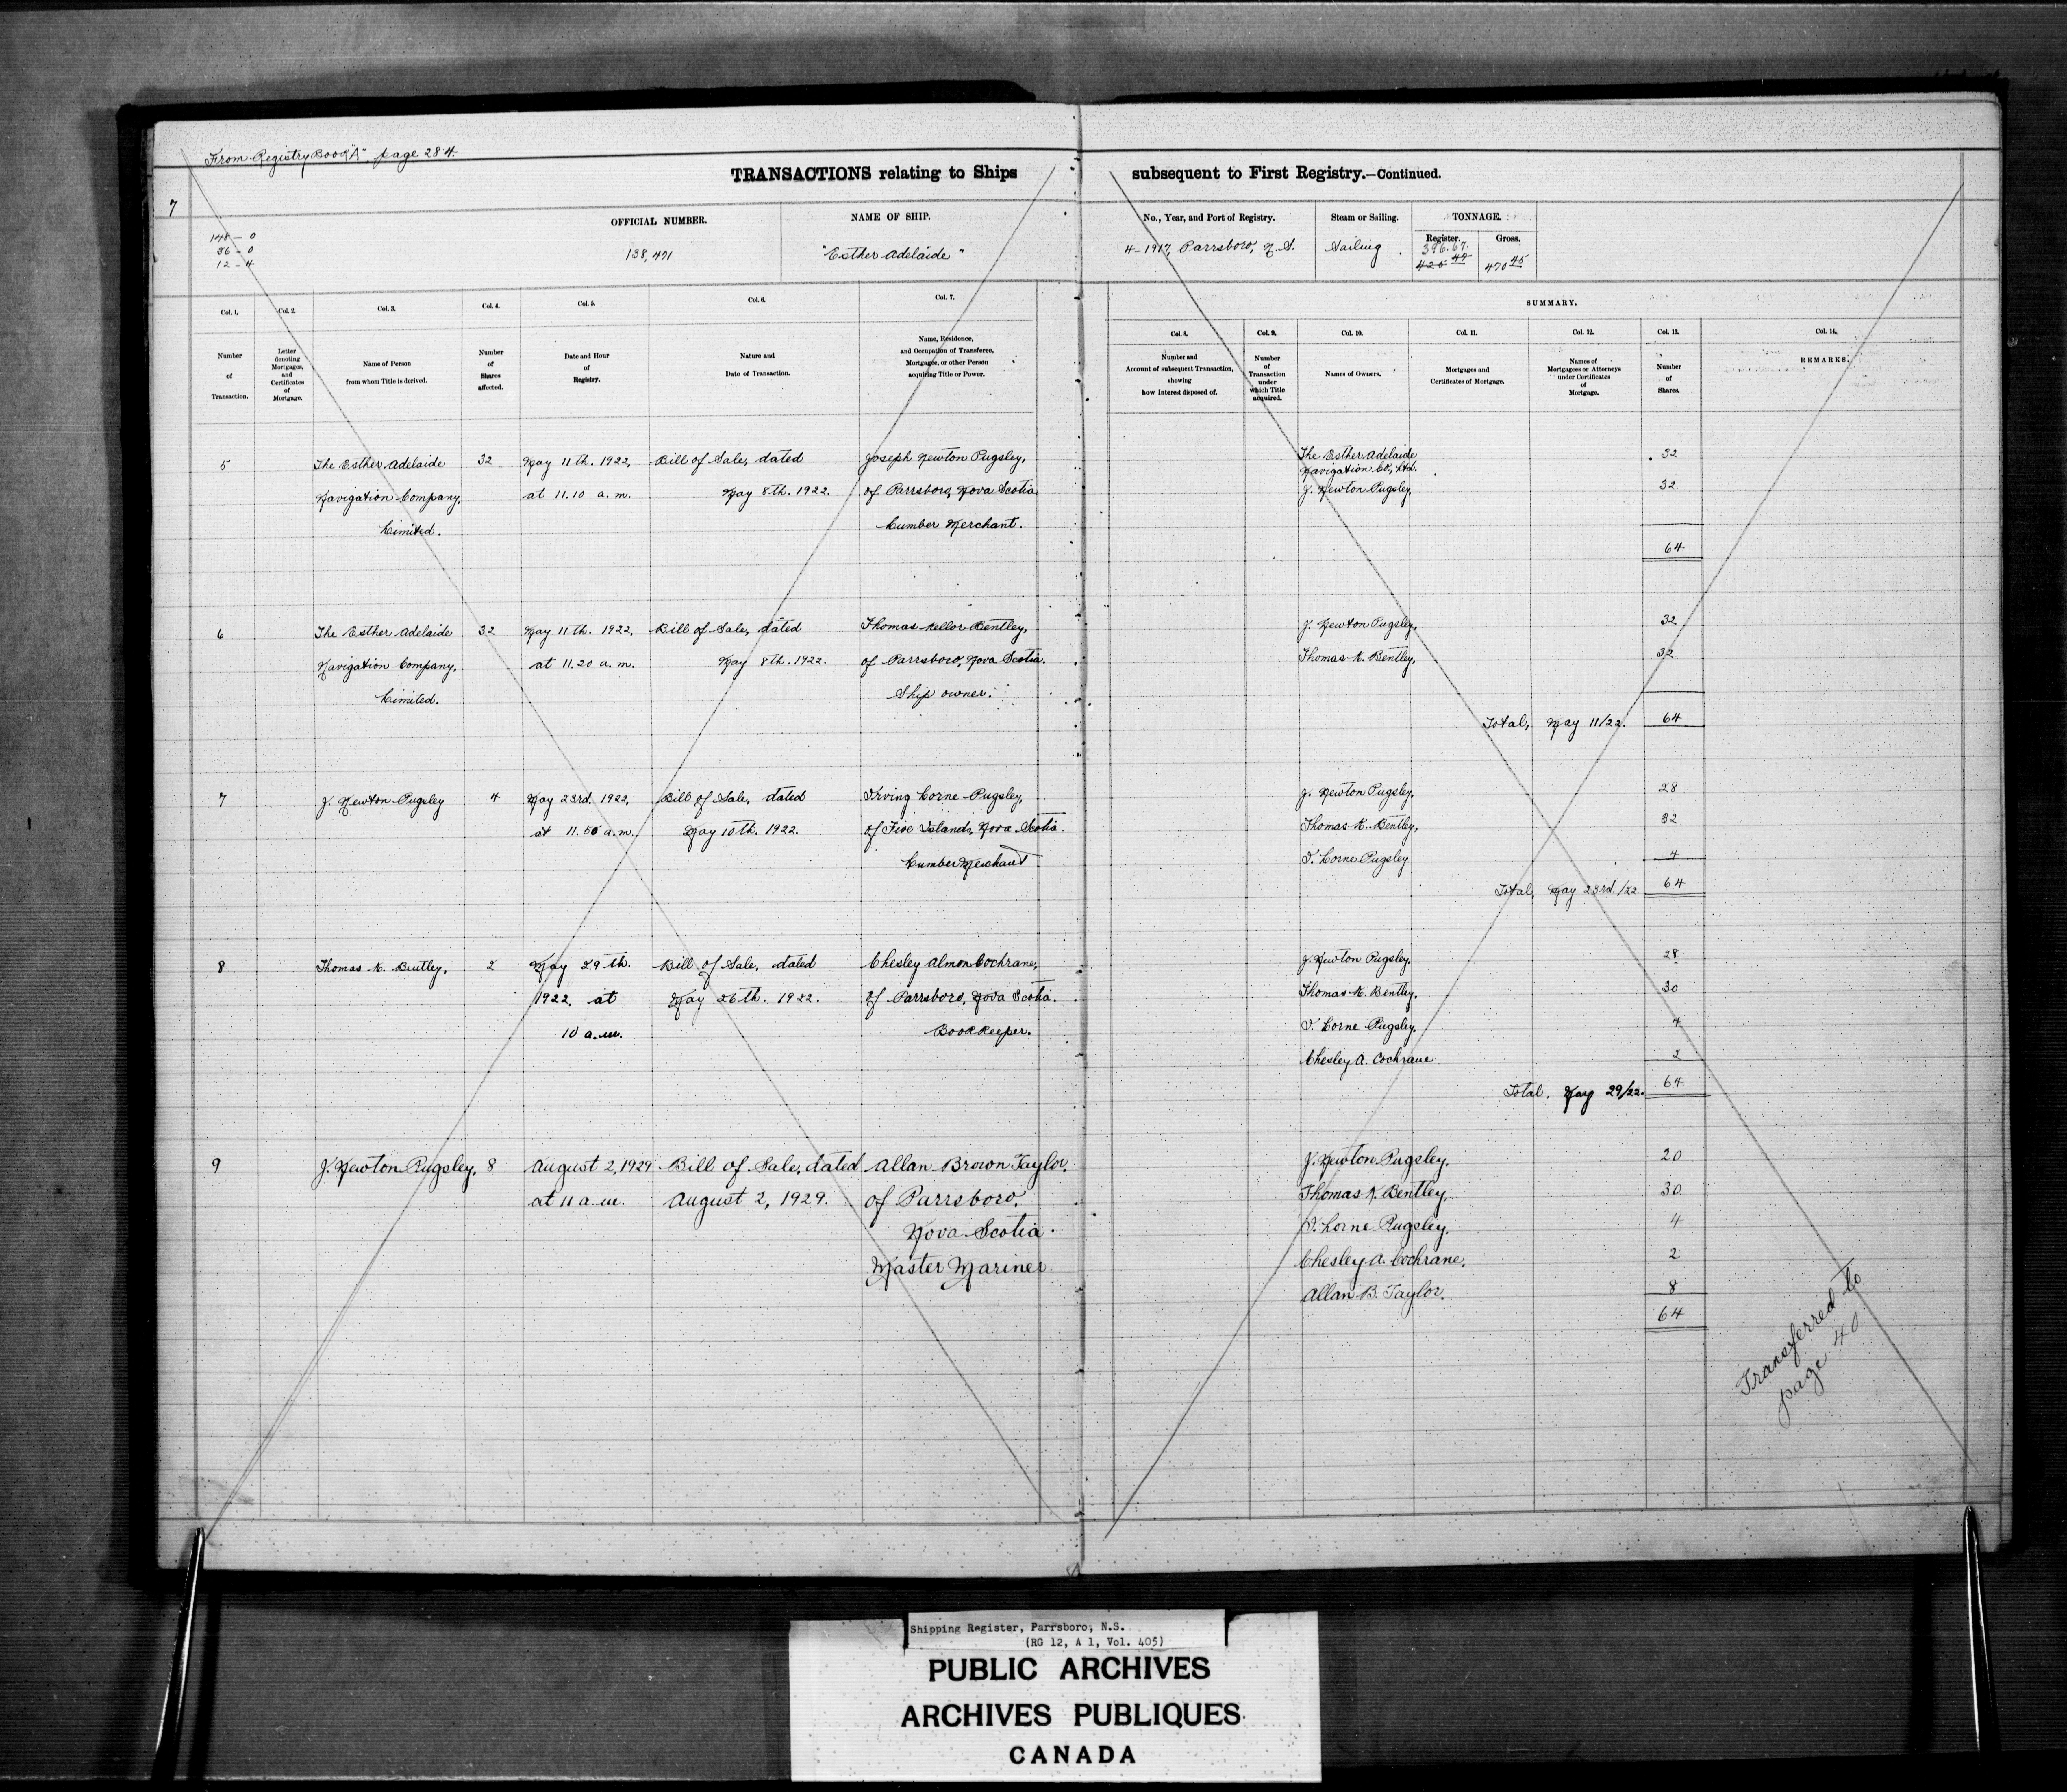 From Registry Book "A", page 284.
TRANSACTIONS relating to Ships subsequent to First Registry.—Continued.
7
OFFICIAL NUMBER.
NAME OF SHIP.
No., Year, and Port of Registry.
Steam or Sailing.
TONNAGE.
Register.
Gross.
148 - 0
36 - 0
12 - 4
138,471
"Esther Adelaide"
4-1917, Parrsboro, N.S.
Sailing
396.67.
425 44
470 45
SUMMARY.
Col. 1.
Col. 2.
Col. 3.
Col. 4.
Col. 5.
Col. 6.
Col. 7.
Col. 8.
Col. 9.
Col. 10.
Col. 11.
Col. 12.
Col. 13.
Col. 14.
Number
of
Transaction.
Letter
denoting
Mortgages,
and
Certificates
of
Mortgage.
Name of Person
from whom Title is derived.
Number
of
Shares
affected.
Date and Hour
of
Registry.
Nature and
Date of Transaction.
Name, Residence,
and Occupation of Transferee,
Mortgagee, or other Person
acquiring Title or Power.
Number and
Account of subsequent Transaction,
showing
how Interest disposed of.
Number
of
Transaction
under
which Title
acquired.
Names of Owners.
Mortgages and
Certificates of Mortgage.
Names of
Mortgagees or Attorneys
under Certificates
of
Mortgage.
Number
of
Shares.
REMARKS.
5 The Esther Adelaide 32 May 11th. 1922, Bill of Sale, dated Joseph Newton Pugsley,
Navigation Company, at 11.10 a.m. May 8th. 1922. of Parrsboro, Nova Scotia
Limited. Lumber Merchant.
The Esther Adelaide 32
Navigation Co., Ltd.
J. Newton Pugsley, 32
64
6 The Esther Adelaide 32 May 11th. 1922, Bill of Sale, dated Thomas Kellor Bentley,
Navigation Company, at 11.20 a.m. May 8th. 1922. of Parrsboro, Nova Scotia.
Limited. Ship owner.
J. Newton Pugsley, 32
Thomas K. Bentley, 32
Total, May 11/22. 64
7 J. Newton Pugsley 4 May 23rd. 1922, Bill of Sale, dated Irving Lorne Pugsley,
at 11.50 a.m. May 10th. 1922. of Five Islands, Nova Scotia.
Lumber Merchant
J. Newton Pugsley, 28
Thomas K. Bentley, 32
I. Lorne Pugsley 4
Total, May 23rd/22 64
8 Thomas K. Bentley, 2 May 29th. Bill of Sale, dated Chesley Almon Cochrane,
1922, at May 26th. 1922. of Parrsboro, Nova Scotia.
10 a.m. Bookkeeper.
J. Newton Pugsley, 28
Thomas K. Bentley, 30
I. Lorne Pugsley, 4
Chesley A. Cochrane 2
Total, May 29/22. 64
9 J. Newton Pugsley, 8 August 2, 1929 Bill of Sale, dated Allan Brown Taylor,
at 11 a.m. August 2, 1929. of Parrsboro,
Nova Scotia.
Master Mariner.
J. Newton Pugsley. 20
Thomas K. Bentley, 30
I. Lorne Pugsley. 4
Chesley A. Cochrane. 2
Allan B. Taylor. 8
64
Transferred to
page 40
Shipping Register, Parrsboro, N.S.
(RG 12, A 1, Vol. 405)
PUBLIC ARCHIVES
ARCHIVES PUBLIQUES
CANADA